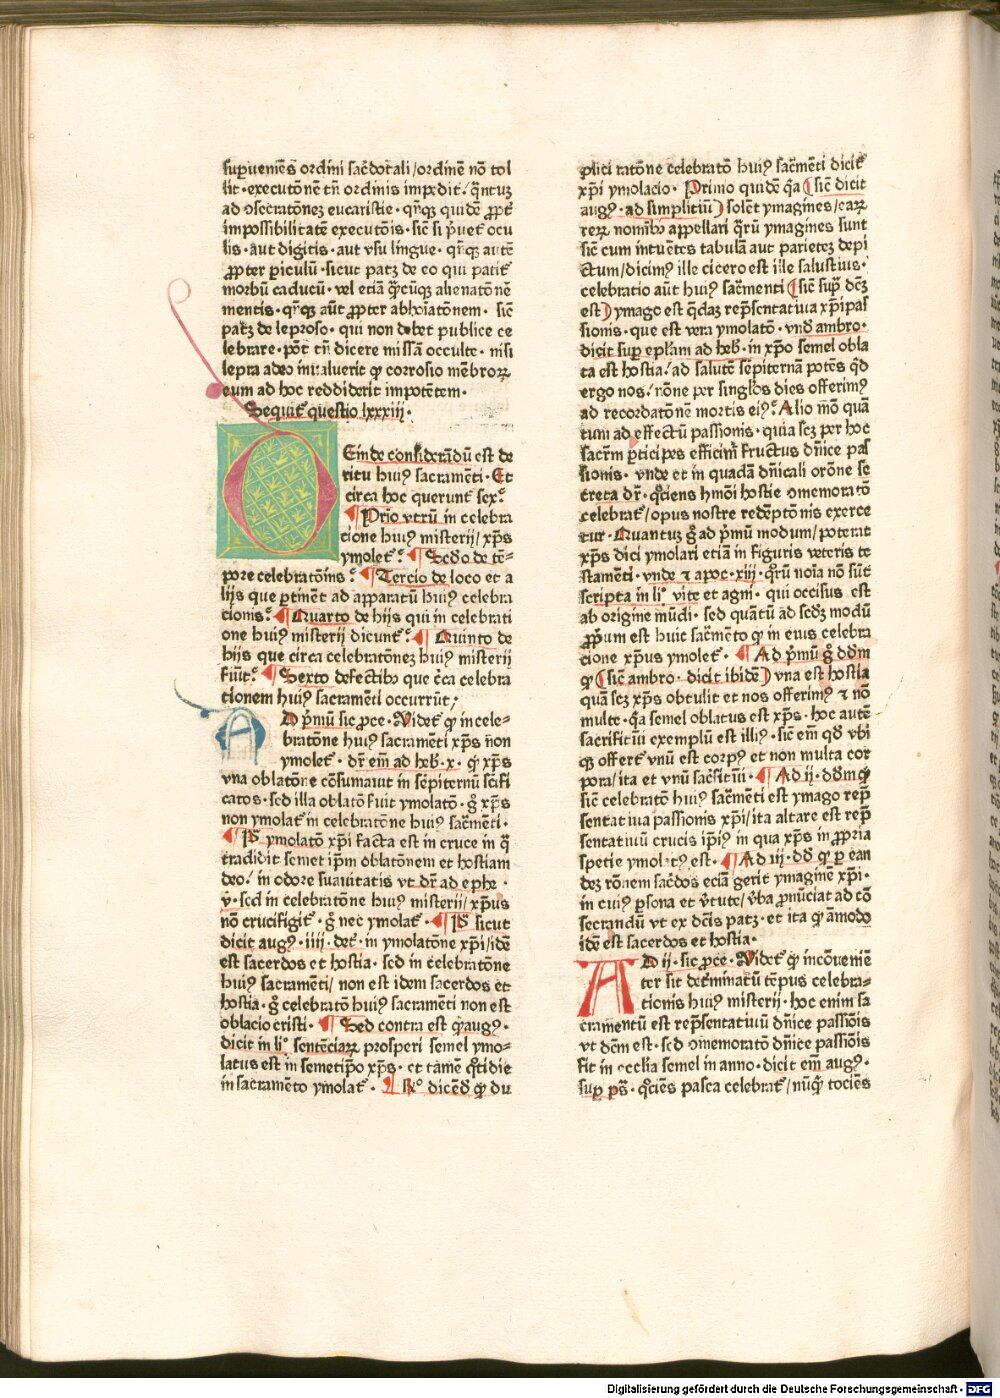 supueniēs ordini sacͤdotali/ordinē nō tol
lit·executōnē tñ ordinis impedit/q̄ntuz
ad ꝯsecratōnez eucaristie·qn̄qꝫ quidē ꝓpt̄
impossibilitatē executōis·sic̄ si p̄uet̄ ocu
lis·aut digitis·aut vsu lingue·qn̄qꝫ autē
ꝓpter ꝑiculū·sicut patꝫ de eo qui patit̄
morbū caducū·vel etiā q̄cūqꝫ alienatōnē
mentis·qn̄qꝫ aūt ꝓpter abhoiatōnem·sic̄
patꝫ de leproso·qui non debet publice ce
lebrare·pōt tñ dicere missā occulte·nisi
lepra adeo inualuerit ꝙ corrosio mēbroꝝ
eum ad hoc reddiderit impotētem·
Sequit̄ questio lxxxiii·
DEinde considerādū est de
ritu huiꝰ sacramēti·Et
circa hoc querunt̄ sex·
¶Prīo vtrū in celebra
tione huiꝰ misterij/xp̄s
ymolet̄·¶Scd̄o de tē⸗
pore celebratōnis·¶Tercio de loco et a
lijs que ꝑtinēt ad apparatū huiꝰ celebra
tionis·¶Quarto de hijs qui in celebrati
one huiꝰ misterij dicunt̄·¶Quinto de
hijs que circa celebratōnez huiꝰ misterij
fiūt·¶Sexto defectibꝰ que c̄ca celebra
tionem huiꝰ sacramēti occurrūt;
AD p̄mū sic ꝓce·Videt̄ ꝙ in cele⸗
bratōne huiꝰ sacramēti xp̄s non
ymolet̄·dr̄ em̄ ad heb̄·x·ꝙ xp̄s
vna oblatōne cōsumauit in sēpiternū sc̄ifi
catos·sed illa oblatō fuit ymolatō·g̊ xp̄s
non ymolat̄ in celebratōne huiꝰ sac̄menti·
¶Pͥ ymolatō xp̄i facta est in cruce in q̄
tradidit semet ip̄m oblatōnem et hostiam
deo/in odore suauitatis vt dr̄ ad ephe·
v·sed in celebratōne huiꝰ misterij/xp̄us
nō crucifigit̄·g̊ nec ymolat̄·¶Pͥ sicut
dicit augꝰ·iiij·det̄·in ymolatōne xp̄i/idē
est sacerdos et hostia·sed in celebratōne
huiꝰ sacramēti/non est idem sacerdos et
hostia·g̊ celebratō huiꝰ sacramēti non est
oblacio cristi·¶Sed contra est q̄ augꝰ·
dicit in liͦ sentēciaꝝ prosperi semel ymo⸗
latus est in semetip̄o xp̄s·et tamē q̄tidie
in sacramēto ymolat̄·¶Rͦ dicēd̄ ꝙ du
plici ratōne celebratō huiꝰ sac̄mēti dicit̄
xp̄i ymolacio·Primo quidē q̄a(sic̄ dicit
augꝰ·ad simpliciū)solēt ymagines/eaꝝ
reꝝ nomībꝰ appellari q̄rū ymagines sunt
sic̄ cum intuētes tabulā aut parietez depi
ctum/dicimꝰ ille cicero est ille salustius·
celebratio aūt huiꝰ sac̄menti(sic̄ supͣ dc̄ꝫ
est)ymago est q̄daꝫ rep̄sentatiua xp̄i pas
sionis·que est vera ymolatō·vnd̄ ambro·
dicit sup ep̄lam ad heb̄·in xp̄o semel obla
ta est hostia/ad salutē sēpiternā potēs qd̄
ergo nos/nōne per singl̄os dies offerimꝰ
ad recordatōnē mortis eiꝰ·Alio mō quā
tum ad effectū passionis·quia scꝫ per hoc
sacr̄m ꝑticipes efficim̄ fructus dn̄ice pas
sionis·vnde et in quadā dn̄icali orōne se
creta dr̄·q̄ciens hm̄oi hostie ꝯmemoratō
celebrat̄/opus nostre redēptōnis exerce
tur·Quantuz g̊ ad p̄mū modum/poterat
xp̄s dici ymolari etiā in figuris veteris te
stamēti·vnde ⁊ apoc·xiij·q̄rū noīa nō sūt
scripta in liͦ vite et agni·qui occisus est
ab origine mūdi·sed quātū ad scd̄ꝫ modū
ꝓp̄um est huic sac̄mēto ꝙ in eius celebra
tione xp̄us ymolet̄·¶Ad p̄mū g̊ dd̄m
ꝙ(sic̄ ambro·dicit ibidē)vna est hostia
quā scꝫ xp̄s obtulit et nos offerimꝰ ⁊ nō
multe·q̄a semel oblatus est xp̄s·hoc autē
sacrificiū exemplū est illiꝰ·sic̄ em̄ qd̄ vbi
qꝫ offert̄ vnū est corpꝰ et non multa cor
pora/ita et vnū sac̄ficiū·¶Ad ij·dd̄m ꝙ
sic̄ celebratō huiꝰ sac̄mēti est ymago rep̄
sentatiua passionis xp̄i/ita altare est rep̄
sentatiuū crucis ip̄iꝰ in qua xp̄s in ꝓpria
spetie ymolatꝰ est·¶Ad iij·dd̄ ꝙ ꝑ ean
deꝫ rōnem sac̄dos eciā gerit ymaginē xp̄i·
in cuiꝰ ꝑsona et v̄tute/v̄ba ꝓnūciat ad cō
secrandū vt ex dc̄is patꝫ·et ita q̄ āmodo
idē est sacerdos et hostia·
AD ij·sic ꝓce·Videt̄ ꝙ incōueniē
ter sit det̄minatū tēpus celebra⸗
tionis huiꝰ misterij·hoc enim sa
cramentū est rep̄sentatiuū dn̄ice passiōis
vt dc̄m est·sed ꝯmemoratō dn̄ice passiōis
fit in ecclīa semel in anno·dicit em̄ augꝰ·
sup pͥs·q̄ciēs pasca celebrat̄/nūq̄ tociēs
Digitalisierung gefördert durch die Deutsche Forschungsgemeinschaft - DFG